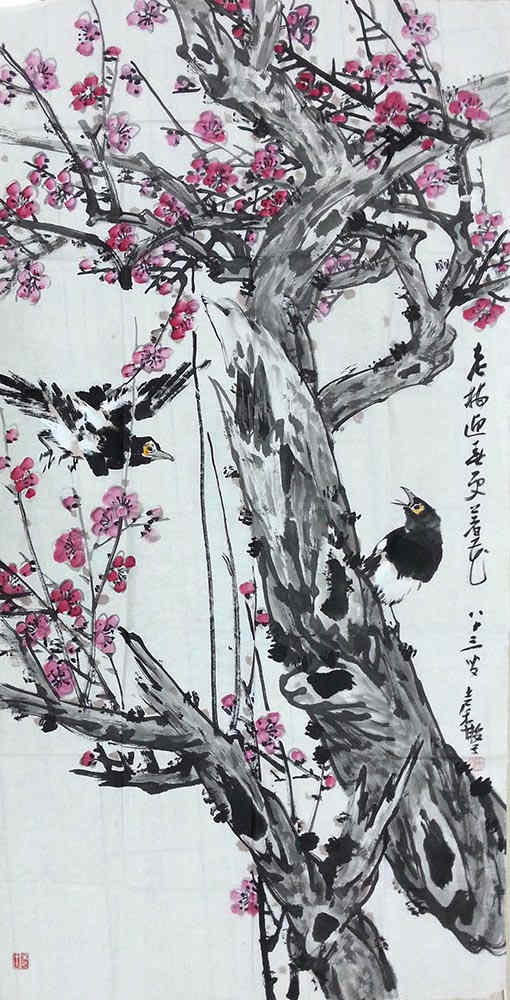 老梅迎春更着花
八十三叟